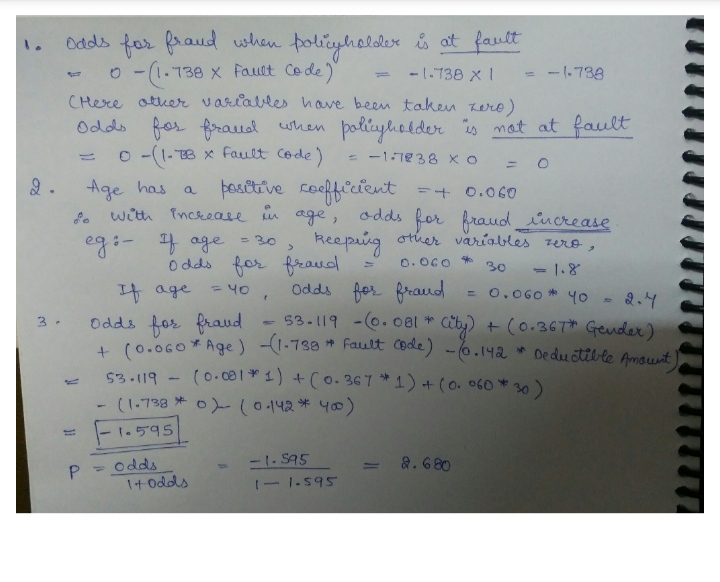 1. Odds for fraud when policyholder is at fault
= 0 - (1.738 × Fault Code) = -1.738 × 1 = -1.738
(Here other variables have been taken zero)
Odds for fraud when policyholder is not at fault
= 0 - (1.738 × Fault Code) = -1.7838 × 0 = 0
2. Age has a positive coefficient = + 0.060
∴ With increase in age, odds for fraud increase.
eg :- If age = 30, keeping other variables zero,
Odds for fraud = 0.060 * 30 = 1.8
If age = 40, Odds for fraud = 0.060 * 40 = 2.4
3. Odds for fraud = 53.119 - (0.081 * City) + (0.367 * Gender)
+ (0.060 * Age) - (1.738 * Fault Code) - (0.142 * Deductible Amount)
= 53.119 - (0.081 * 1) + (0.367 * 1) + (0.060 * 30)
- (1.738 * 0) - (0.142 * 400)
= -1.595
P = Odds / 1+Odds = -1.595 / 1-1.595 = 2.680